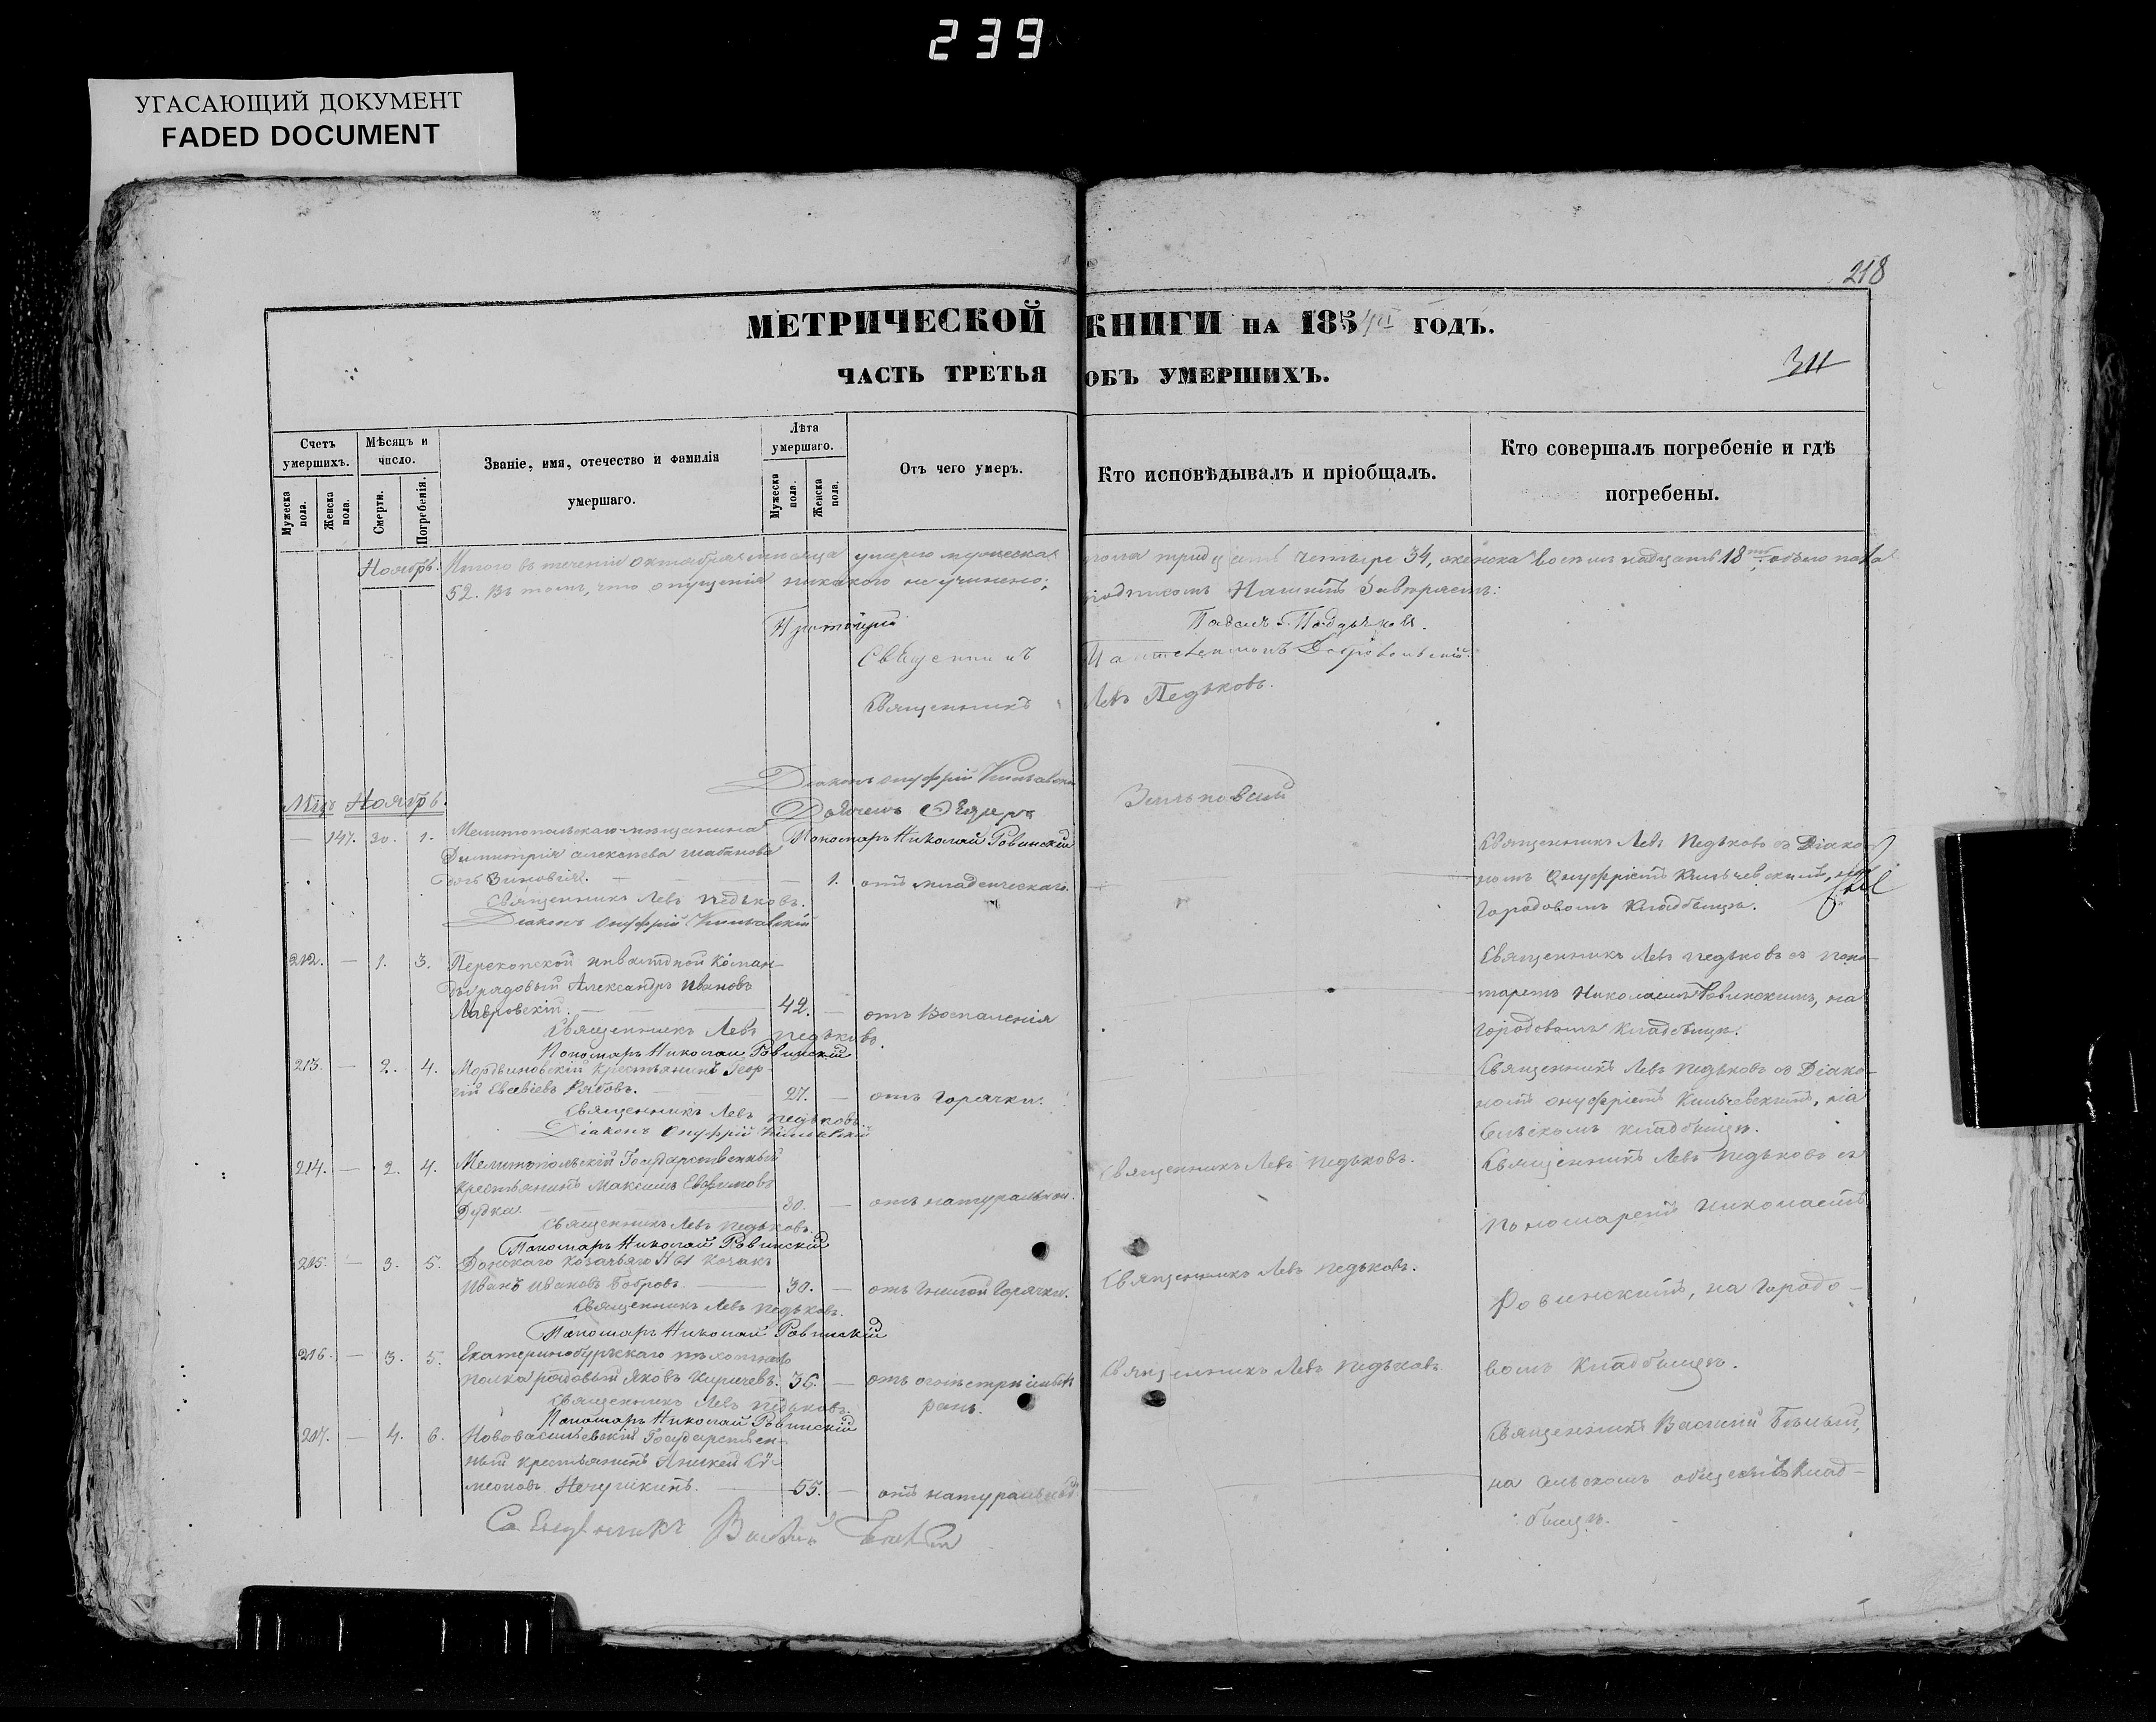 239
УГАСАЮЩИЙ ДОКУМЕНТ
FADED DOCUMENT
218
МЕТРИЧЕСКОЙ КНИГИ НА 185 ГОДЪ.
ЧАСТЬ ТРЕТЬЯ ОБЪ УМЕРШИХЪ.
Счетъ умершихъ.
Мужеска пола.
Женска пола.
Мѣсяцъ и число.
Смерти.
Погребенія.
Званіе, имя, отечество и фамилія
умершаго.
Лѣта умершаго.
Мужеска пола.
Женска пола.
Отъ чего умеръ.
Кто исповѣдывалъ и пріобщалъ.
Кто совершалъ погребеніе и гдѣ
погребены.
Ноябрь. Итого въ теченіи октября мѣсяца умерло мужеска пола тридцать четыре 34, женска восемнадцать 18, обоего пола
52. Въ томъ, что опущенія никакого не учинено; подписомъ
Протоіерей Павелъ
Священникъ
Священникъ Левъ Педьковъ.
Діаконъ Онуфрій
Пономарь Николай Ровинскій
Ноябрь.
— 147. 30. 1. Мелитопольскаго мѣщанина
Димитрія алексѣева шабанова
дочь Зиновія. — 1. отъ младенческаго.
Священникъ Левъ Педьковъ съ Діако-
номъ Онуфріемъ Кильчевскимъ, на
Городовомъ Кладбищѣ.
Священникъ Левъ Педьковъ.
Діаконъ Онуфрій
212. — 1. 3. Перекопской инвалидной Коман-
ды рядовый Александръ Ивановъ
Лавровскій. — 42. — отъ Воспаленія
Священникъ Левъ Педьковъ съ поно-
маремъ Николаемъ Ровинскимъ, на
городовомъ кладбищѣ.
Священникъ Левъ Педьковъ.
Пономарь Николай Ровинскій
213. — 2. 4. Мордвиновскій крестьянинъ Геор-
гій Евсевіевъ Рябовъ. — 27. — отъ горячки.
Священникъ Левъ Педьковъ съ Діако-
номъ Онуфріемъ Кильчевскимъ, на
Сельскомъ кладбищѣ.
Священникъ Левъ Педьковъ.
Діаконъ Онуфрій
214. — 2. 4. Мелитопольскій Государственный
крестьянинъ Максимъ Евфимовъ
Дудка. — 30. — отъ натуральной.
Священникъ Левъ Педьковъ.
Священникъ Левъ Педьковъ съ
Пономаремъ Николаемъ
Священникъ Левъ Педьковъ.
Пономарь Николай Ровинскій
215. — 3. 5. Донскаго Козачьяго козакъ
Иванъ Ивановъ Бобровъ. — 30. — отъ гнилой Горячки.
Священникъ Левъ Педьковъ.
Ровинскимъ, на Городо-
Священникъ Левъ Педьковъ.
Пономарь Николай Ровинскій
216. — 3. 5. Екатеринбургскаго пѣхотнаго
полка рядовый Яковъ Киричевъ. 36. — отъ огнестрѣльн
ранъ.
Священникъ Левъ Педьковъ
вомъ Кладбищѣ.
Священникъ Левъ Педьковъ.
Пономарь Николай Ровинскій
217. — 4. 6. Нововасильевскій Государствен-
ный крестьянинъ Аникей Си-
меоновъ Нечушкинъ. — 55. — отъ натуральной
Священникъ Василій Бѣлый,
на Сельскомъ общемъ Клад-
бищѣ.
Священникъ Василій